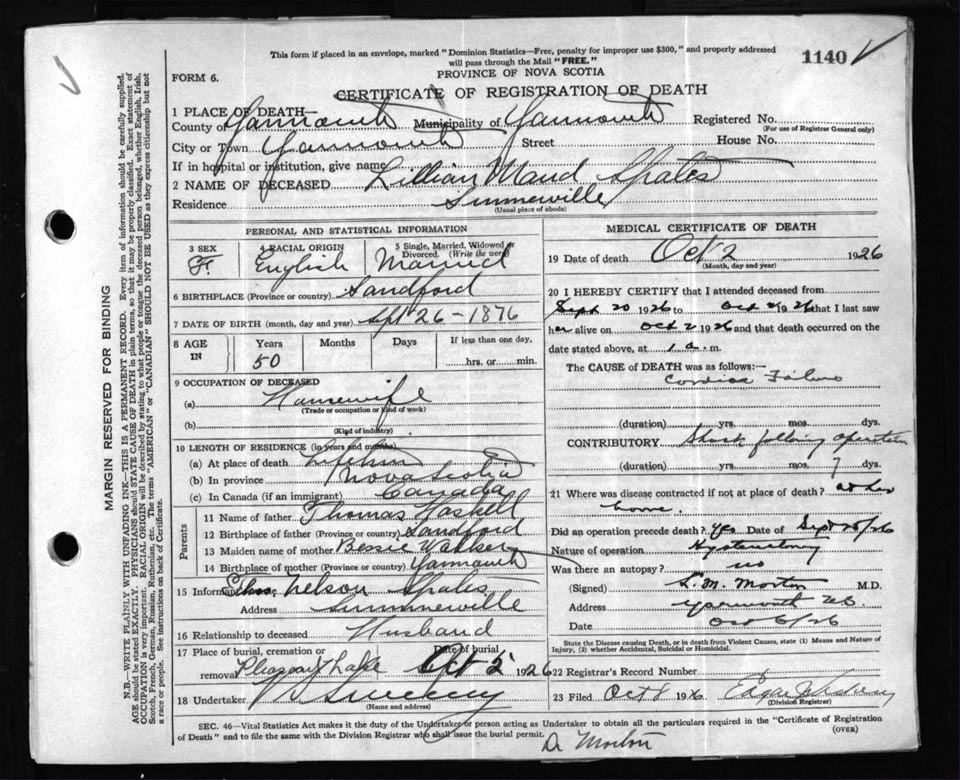 This form if placed in an envelope, marked "Dominion Statistics—Free, penalty for improper use $300," and properly addressed
will pass through the Mail "FREE."
1140 ✓
FORM 6.
PROVINCE OF NOVA SCOTIA
CERTIFICATE OF REGISTRATION OF DEATH
1 PLACE OF DEATH—
County of Yarmouth Municipality of Yarmouth Registered No.
(For use of Registrar General only)
City or Town Yarmouth Street House No.
If in hospital or institution, give name
2 NAME OF DECEASED Lillian Maud Spates
Residence Summerville
(Usual place of abode)
PERSONAL AND STATISTICAL INFORMATION
3 SEX F. 4 RACIAL ORIGIN English 5 Single, Married, Widowed or Divorced. (Write the word) Married
6 BIRTHPLACE (Province or country) Sandford
7 DATE OF BIRTH (month, day and year) Spt 26 – 1876
8 AGE IN Years 50 Months Days If less than one day, hrs. or min.
9 OCCUPATION OF DECEASED
(a) Housewife
(Trade or occupation or kind of work)
(b)
(Kind of industry)
10 LENGTH OF RESIDENCE (in years and months)
(a) At place of death Lifetime
(b) In province Nova Scotia
(c) In Canada (if an immigrant) Canada
Parents
11 Name of father Thomas Haskell
12 Birthplace of father (Province or country) Sandford
13 Maiden name of mother Bessie Walker
14 Birthplace of mother (Province or country) Yarmouth
15 Informant Nelson Spates
Address Summerville
16 Relationship to deceased Husband
17 Place of burial, cremation or removal Pleasant Lake Date of burial Oct 5 1926
18 Undertaker V S Sweeney
(Name and address)
MEDICAL CERTIFICATE OF DEATH
19 Date of death Oct 2 1926
(Month, day and year)
20 I HEREBY CERTIFY that I attended deceased from
Sept 20 1926 to Oct 2 1926 that I last saw
her alive on Oct 2 1926 and that death occurred on
date stated above, at 1 a. m.
The CAUSE of DEATH was as follows:—
Cardiac Failure
(duration) yrs. mos. dys.
CONTRIBUTORY Shock following operation
(duration) yrs. mos. 7 dys.
21 Where was disease contracted if not at place of death?
home.
Did an operation precede death? Yes Date of Sept 25/26
Nature of operation Hysterectomy
Was there an autopsy? no
(Signed) S. M. Morton M.D.
Address Yarmouth N.S.
Date Oct 6/26
State the Disease causing Death, or in death from Violent Causes, state (1) Means and Nature of
Injury, (2) whether Accidental, Suicidal or Homicidal.
22 Registrar's Record Number
23 Filed Oct 8 1926
(Division Registrar)
SEC. 46—Vital Statistics Act makes it the duty of the Undertaker or person acting as Undertaker to obtain all the particulars required in the "Certificate of Registration
of Death" and to file the same with the Division Registrar who shall issue the burial permit.
(OVER)
Dr Morton
MARGIN RESERVED FOR BINDING
N.B.—WRITE PLAINLY WITH UNFADING INK—THIS IS A PERMANENT RECORD. Every item of information should be carefully supplied.
AGE should be stated EXACTLY. PHYSICIANS should STATE CAUSE OF DEATH in plain terms, so that it may be properly classified. Exact statement of
OCCUPATION is very important. RACIAL ORIGIN will be described by stating to what people or tongue the deceased person belonged, whether English, Irish,
Scotch, French, German, Russian, Ruthenian, etc. The terms "AMERICAN" or "CANADIAN" SHOULD NOT BE USED as they express citizenship but not
a race or people. See instructions on back of Certificate.